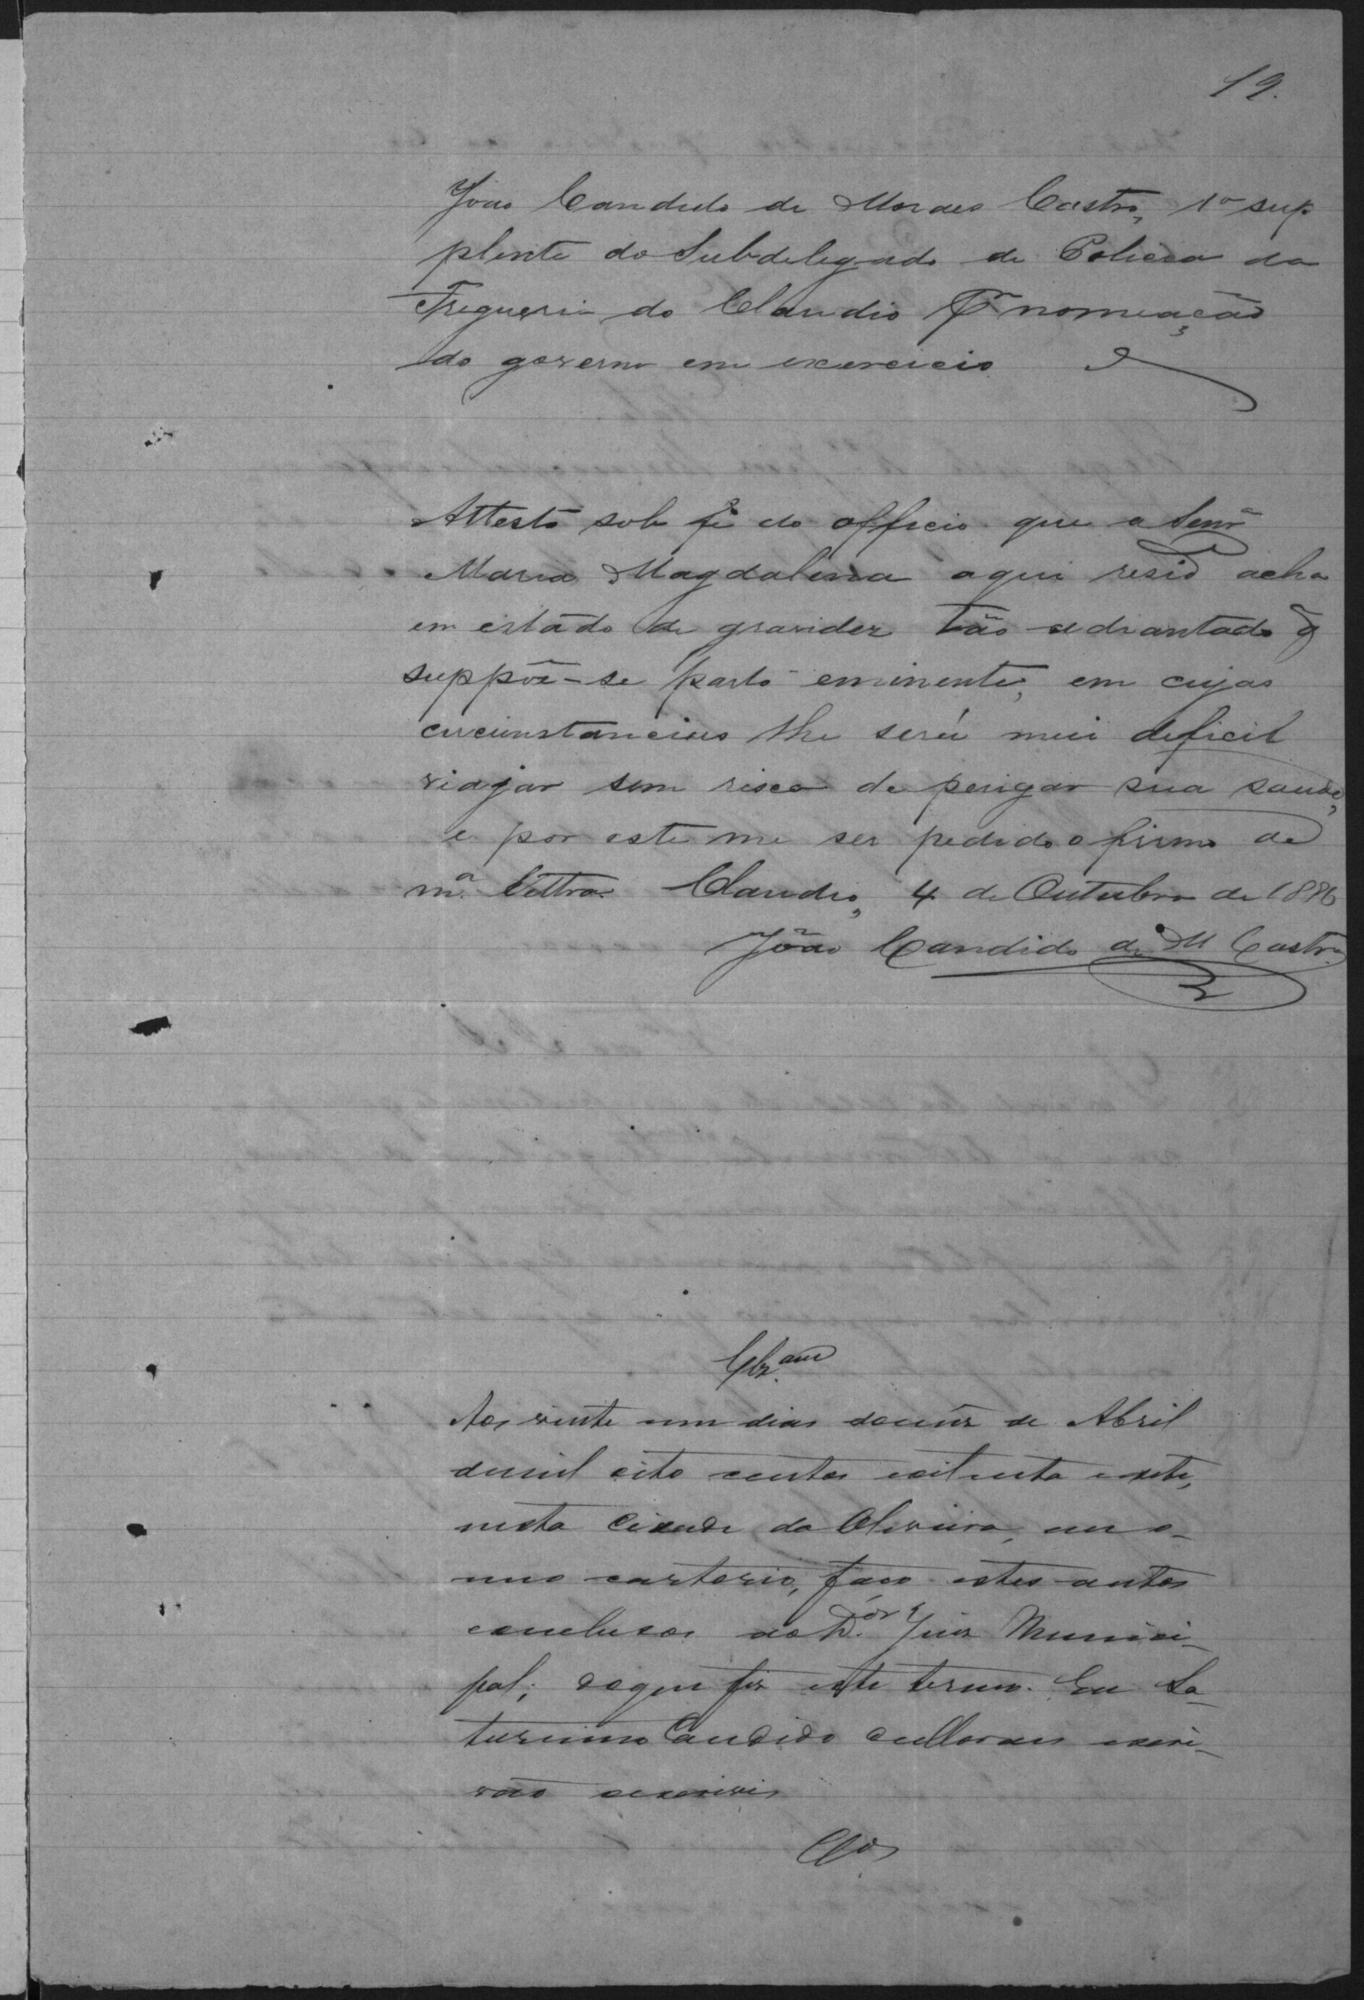 19.
João Candido de Moraes Castro, 1º sup
plente do Subdelegado de Policia da
Freguesia do Claudio Pr nomeação
do governo em exercicio
Attesto sob fé do officio que a Senrª
Maria Magdalena aqui resid acha
em estado de gravidez tão adiantado q̃
suppõe-se parto eminente, em cujas
circunstancias lhe será mui deficil
viajar sem risco de perigar sua saude,
e por este me ser pedido o firmo de
mª lettra. Claudio, 4 de Outubro de 1886
João Candido de M Castro
Clzam
Aos vinte um dias domez de Abril
demil oito centos eoitenta esete,
nesta Cidade da Oliveira, em o
meu cartorio, faço estes autos
conclusos ao Dor Juiz Munici-
pal; doque fiz este termo. Eu Sa-
turnino Candido de Moraes escri-
vão escrivi
Clos